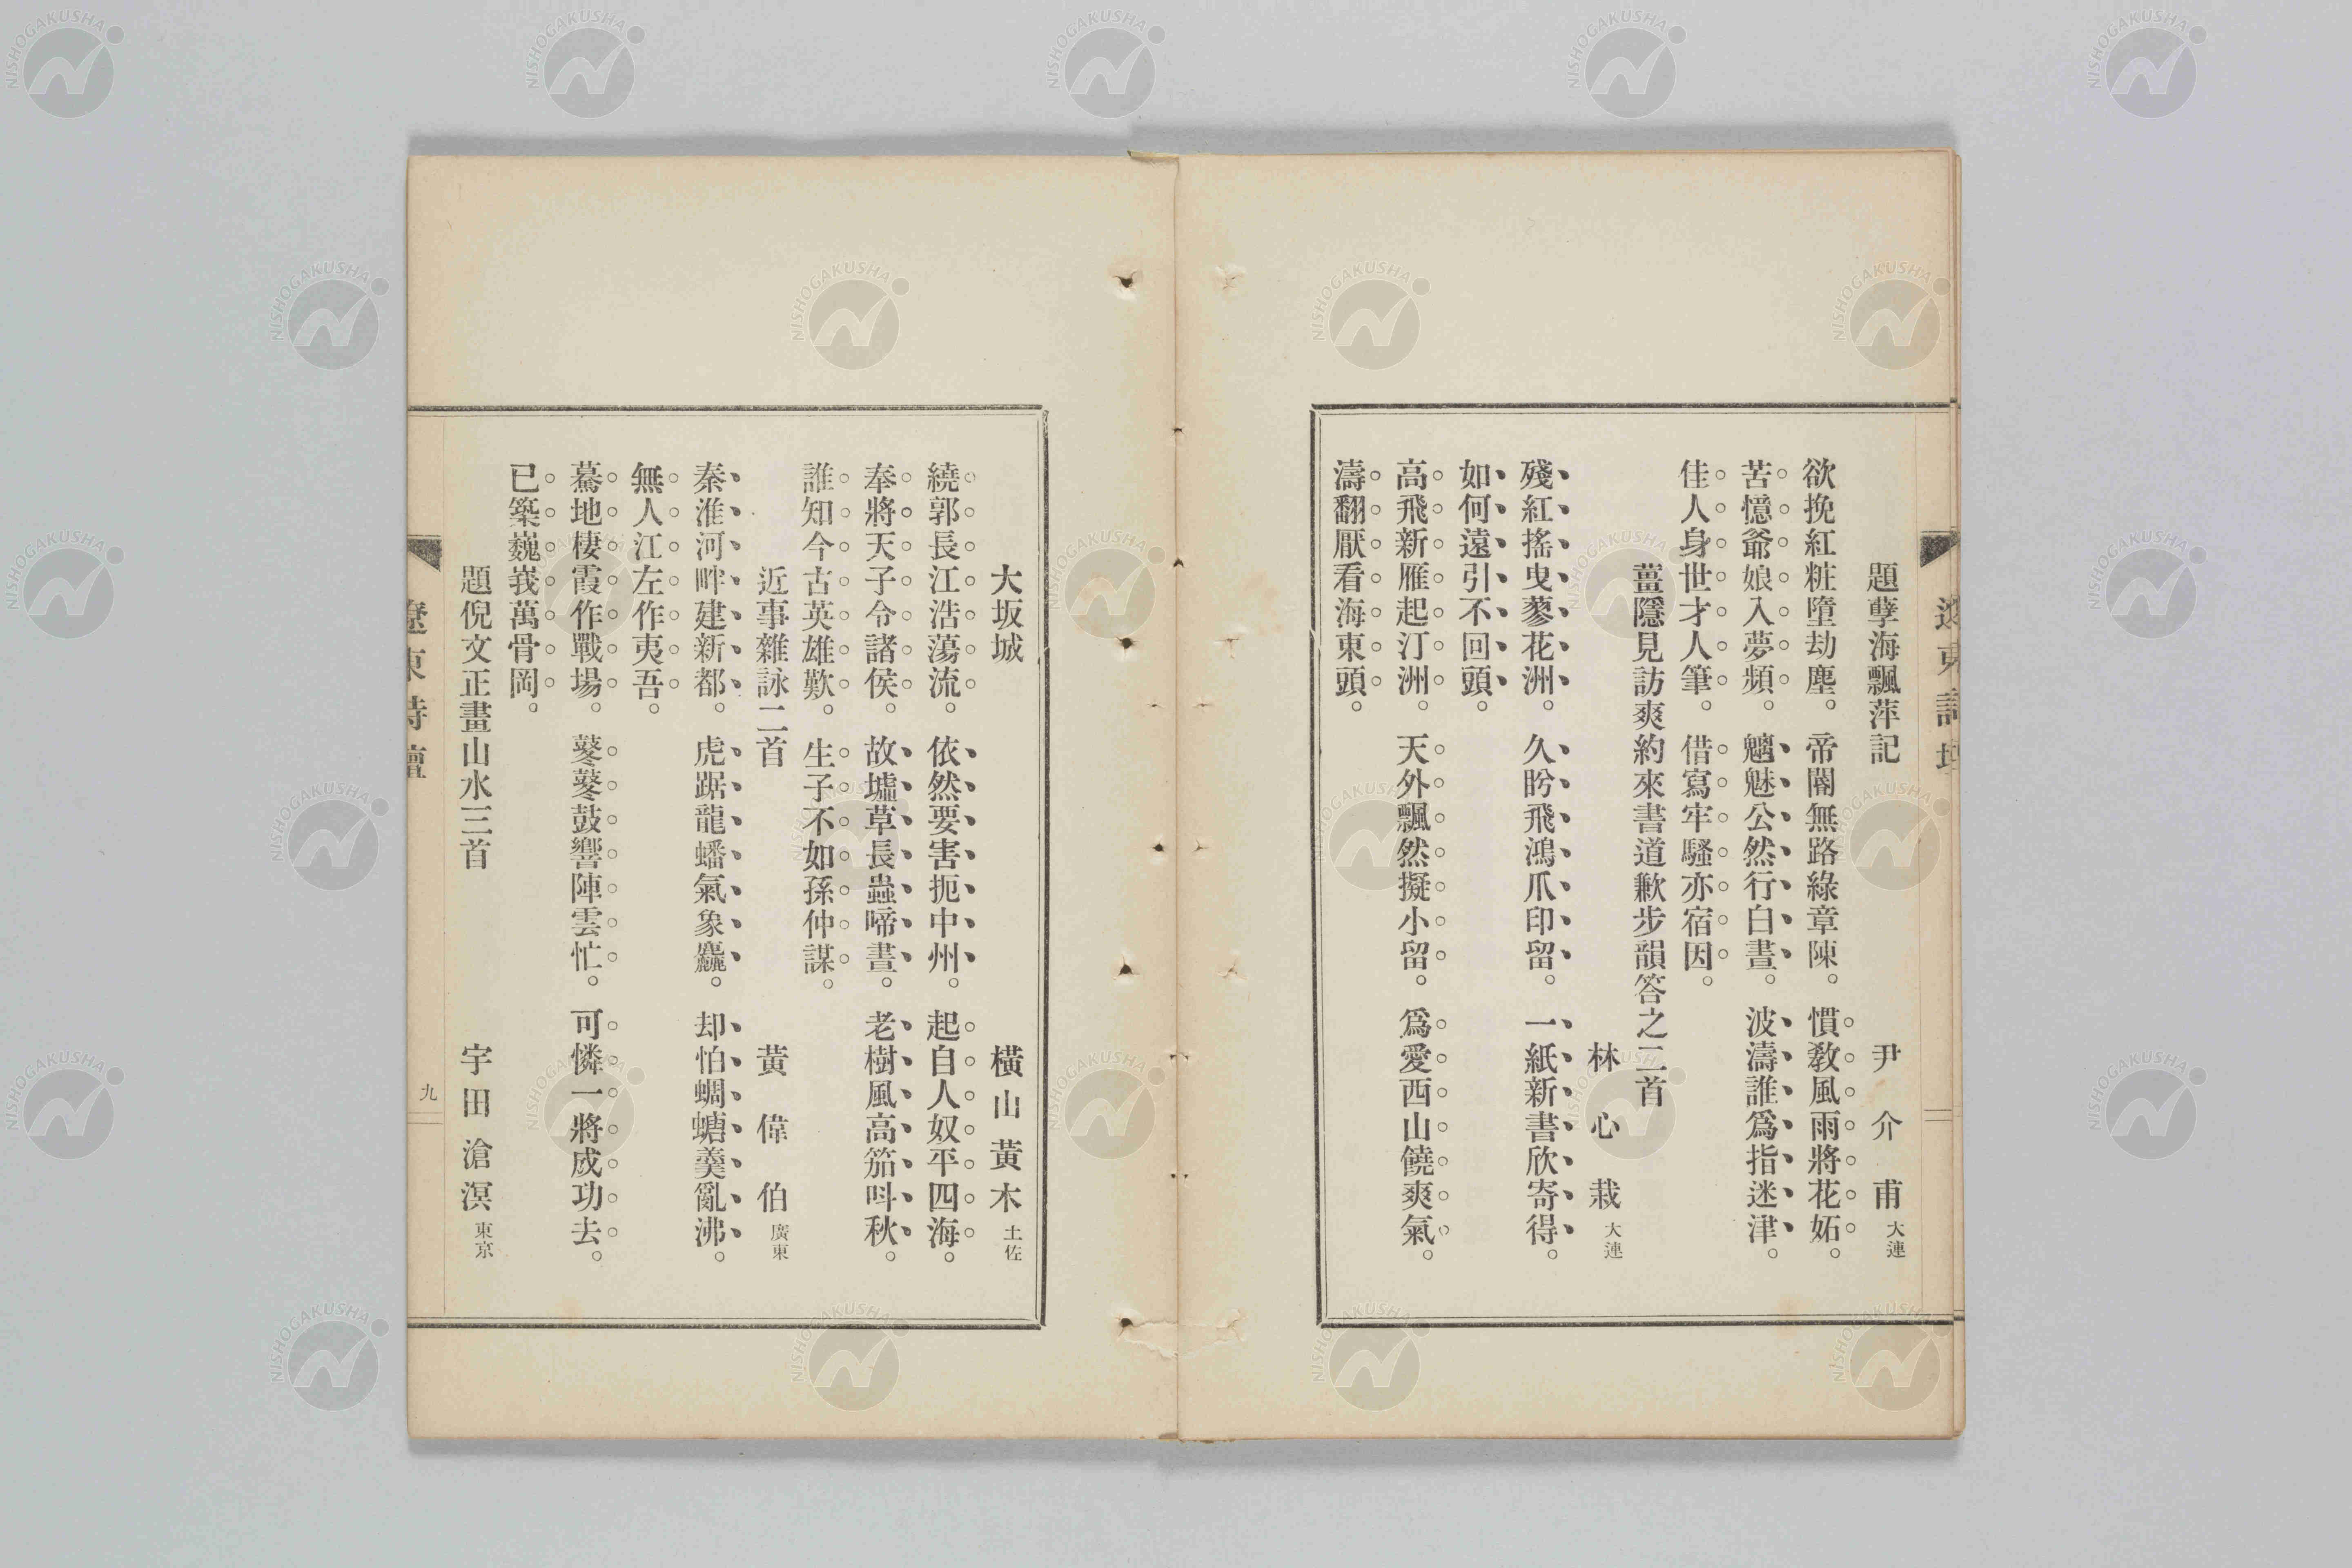 題孽海飄萍記　尹介甫 大連
欲挽紅粧墮劫塵。帝閽無路綠章陳。慣敎風雨將花妬。
苦憶爺娘入夢頻。魑魅公然行白晝。波濤誰爲指迷津。
佳人身世才人筆。借寫牢騷亦宿因。
薑隱見訪爽約來書道歉步韻答之二首
林心栽 大連
殘紅搖曳蓼花洲。久盻飛鴻爪印留。一紙新書欣寄得。
如何遠引不回頭。
高飛新雁起汀洲。天外飄然擬小留。爲愛西山饒爽氣。
濤翻厭看海東頭。
大坂城　橫山黃木 土佐
繞郭長江浩蕩流。依然要害扼中州。起自人奴平四海。
奉將天子令諸侯。故墟草長蟲啼晝。老樹風高笳呌秋。
誰知今古英雄歎。生子不如孫仲謀。
近事雜詠二首　黃偉伯 廣東
秦淮河畔建新都。虎踞龍蟠氣象麤。却怕蜩螗羹亂沸。
無人江左作夷吾。
驀地棲霞作戰場。鼕鼕鼓響陣雲忙。可憐一將成功去。
已築巍峩萬骨岡。
題倪文正畫山水三首　宇田滄溟 東京
遼東詩壇
九
NISHOGAKUSHA